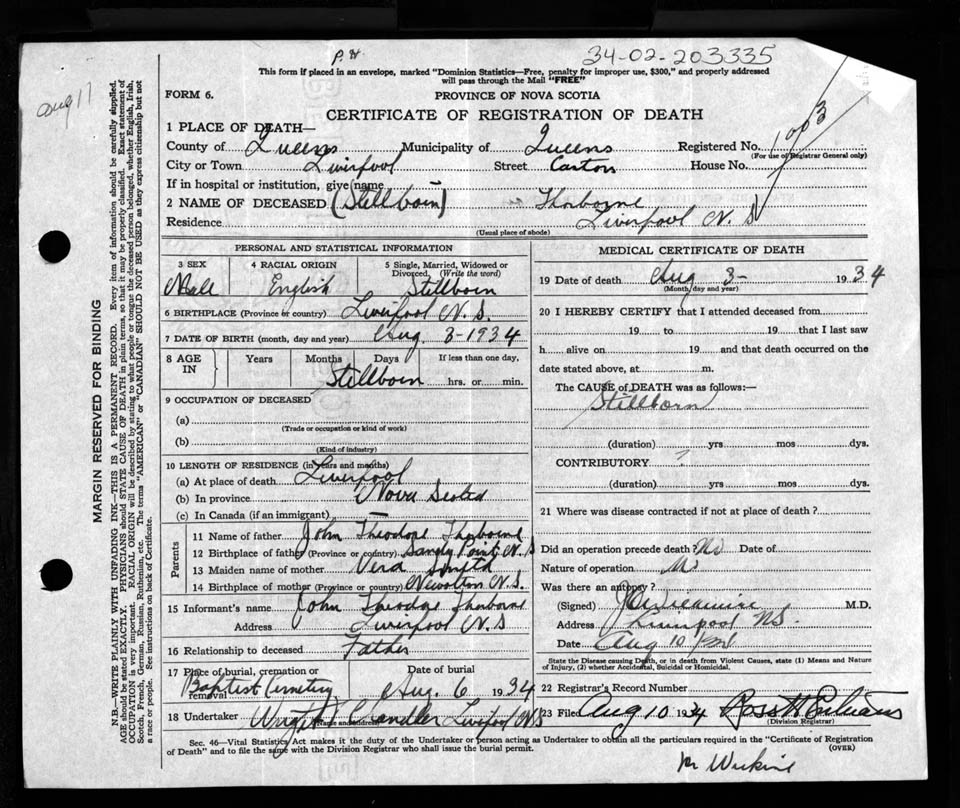 P. H
34-02-203335
This form if placed in an envelope, marked "Dominion Statistics—Free, penalty for improper use, $300," and properly addressed
will pass through the Mail "FREE"
Aug 17
FORM 6.
PROVINCE OF NOVA SCOTIA
CERTIFICATE OF REGISTRATION OF DEATH
1003
1 PLACE OF DEATH—
County of Queens Municipality of Queens Registered No.
(For use of Registrar General only)
City or Town Liverpool Street House No.
If in hospital or institution, give name —
2 NAME OF DECEASED (Stillborn) " Thorborne
Residence Liverpool N. S
(Usual place of abode)
PERSONAL AND STATISTICAL INFORMATION
3 SEX 4 RACIAL ORIGIN 5 Single, Married, Widowed or
Divorced, (Write the word)
Male English Stillborn
6 BIRTHPLACE (Province or country) Liverpool N. S.
7 DATE OF BIRTH (month, day and year) Aug. 3-1934
8 AGE IN Years Months Days If less than one day,
Stillborn hrs. or min.
9 OCCUPATION OF DECEASED
(a)
(Trade or occupation or kind of work)
(b)
(Kind of industry)
10 LENGTH OF RESIDENCE (in years and months)
(a) At place of death Liverpool
(b) In province Nova Scotia
(c) In Canada (if an immigrant) —
Parents
11 Name of father John Theodore Thorborne
12 Birthplace of father (Province or country) Sandy Point N. S
13 Maiden name of mother Vera Smith
14 Birthplace of mother (Province or country) N. S.
15 Informant's name John Theodore Thorborne
Address Liverpool N. S
16 Relationship to deceased Father
17 Place of burial, cremation or removal Date of burial
Baptist Cemetery Aug. 6 1934
18 Undertaker Chandler Liverpool NS
MEDICAL CERTIFICATE OF DEATH
19 Date of death Aug 3- 1934
(Month, day and year)
20 I HEREBY CERTIFY that I attended deceased from
19 to 19 that I last saw
h alive on 19 and that death occurred on the
date stated above, at m.
The CAUSE of DEATH was as follows:—
Stillborn
(duration) yrs mos dys.
CONTRIBUTORY ?
(duration) yrs. mos. dys.
21 Where was disease contracted if not at place of death?
Did an operation precede death? No Date of
Nature of operation No
Was there an autopsy?
(Signed) M.D.
Address Liverpool NS.
Date Aug 10/34
State the Disease causing Death, or in death from Violent Causes, state (1) Means and Nature
of Injury, (2) whether Accidental, Suicidal or Homicidal.
22 Registrar's Record Number
23 Filed Aug 10 1934 Ross H
(Division Registrar)
Sec. 46—Vital Statistics Act makes it the duty of the Undertaker or person acting as Undertaker to obtain all the particulars required in the "Certificate of Registration
of Death" and to file the same with the Division Registrar who shall issue the burial permit.
(OVER)
MARGIN RESERVED FOR BINDING
N.B.—WRITE PLAINLY WITH UNFADING INK—THIS IS A PERMANENT RECORD. Every item of information should be carefully supplied.
AGE should be stated EXACTLY. PHYSICIANS should STATE CAUSE OF DEATH in plain terms, so that it may be properly classified. Exact statement of
OCCUPATION is very important. RACIAL ORIGIN will be described by stating to what people or tongue the deceased person belonged, whether English, Irish,
Scotch, French, German, Russian, Ruthenian, etc. The terms "AMERICAN" or "CANADIAN" SHOULD NOT BE USED as they express citizenship but not
a race or people. See instructions on back of Certificate.